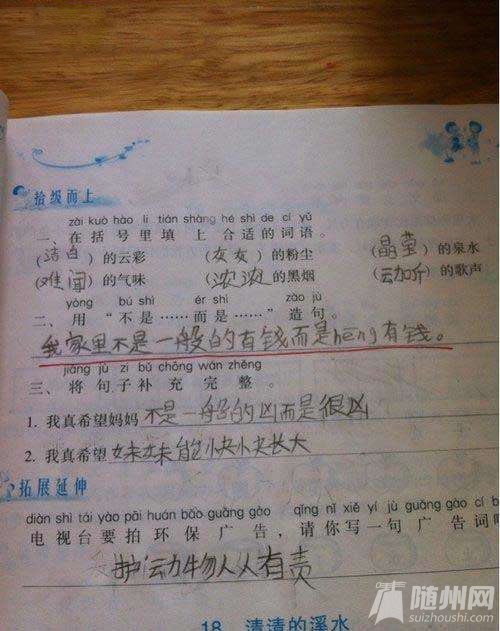 拾级而上
zài kuò hào lǐ tián shàng hé shì de cí yǔ
一、在括号里填上合适的词语。
(洁白)的云彩 (灰灰)的粉尘 (晶莹)的泉水
(难闻)的气味 (浓浓)的黑烟 (动听)的歌声
yòng bú shì ér shì zào jù
二、用“不是……而是……”造句。
我家里不是一般的有钱而是hěng有钱。
jiāng jù zi bǔ chōng wán zhěng
三、将句子补充完整。
1. 我真希望妈妈不是一般的凶而是很凶
2. 我真希望妹妹能快快长大
拓展延伸
diàn shì tái yào pāi huán bǎo guǎng gào qǐng nǐ xiě yí jù guǎng gào cí b
电视台要拍环保广告，请你写一句广告词吧
护动物人人有责
18 清清的溪水
随州网
suizhoushi.com